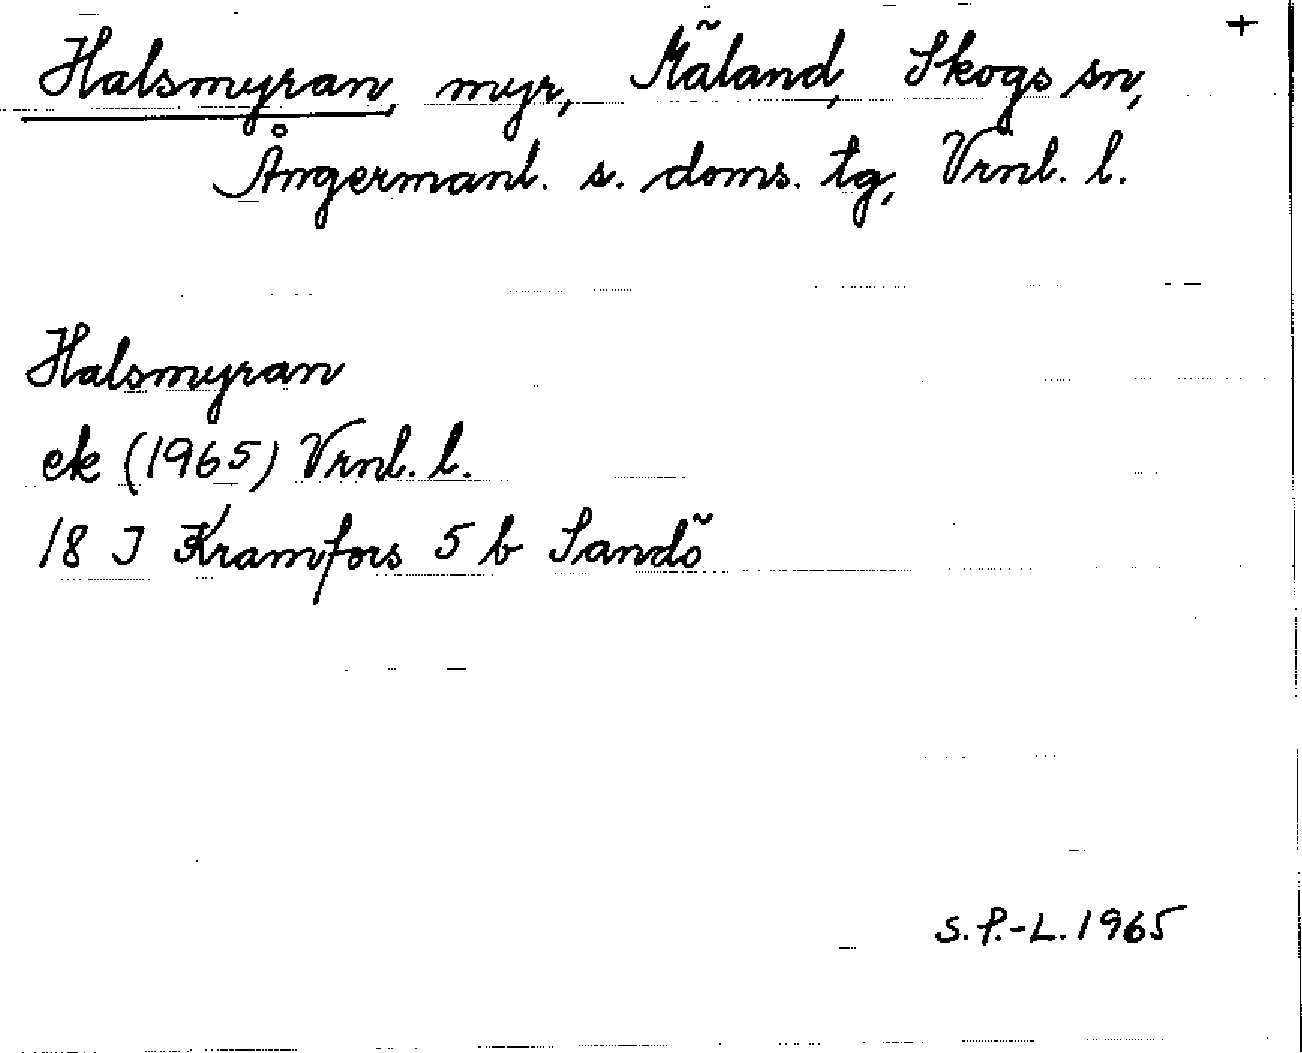 +
Halsmyran, myr, Mäland, Skogs sn,
Ångermanl. s. doms. tg, Vrnl. l.
Halsmyran
ek (1965) Vrnl. l.
18 I Kramfors 5 b Sandö
S.P.-L. 1965